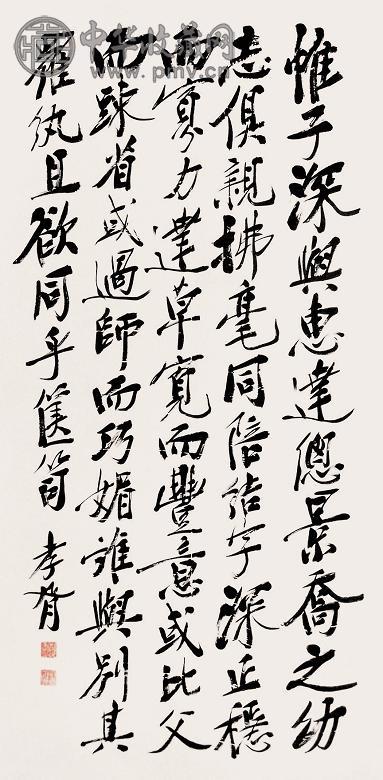 中华收藏网
www.pmv.cn
惟子深與惠達總景喬之幼
志俱親拂毫同陪結字深正穩
而寡力達草寬而豐意或比父
而疎省或過師而巧媚誰與別其
羅紈且欲同乎篋笥 孝胥